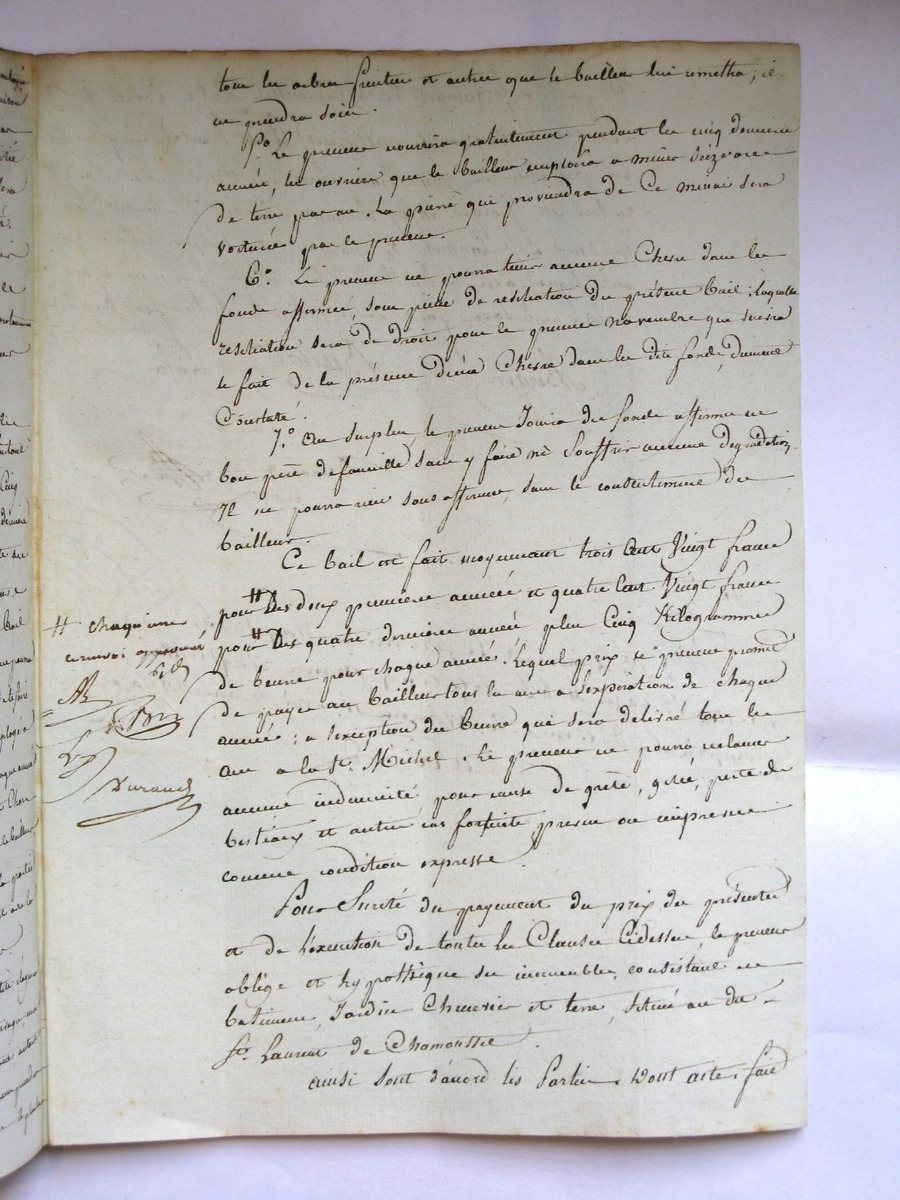 tous les arbres fruitiers et autres que le bailleur lui remettra; il
en prendra soin.
5.° Le preneur nourrira gratuitement pendant les cinq dernieres
années, les ouvriers que le bailleur emploira a miner seize ares
de terre par an. La pierre qui proviendra de ce minai sera
voiturée par le preneur.
6.° Le preneur ne pourra tenir aucune Chevre dans les
fonds affermés, sous peine de resiliation du présent bail; laquelle
resiliation sera de droit pour le premier novembre qui suivra
le fait de la présence d'une Chevre dans les dits fonds, dument
Constaté.
7.° Au surplus, le preneur Jouira des fonds affermés en
bon père de famille, sans y faire ni Souffrir aucune dégradation.
Il ne pourra rien sous affermer, sans le consentement du
bailleur.
Ce bail est fait moyennant trois Cent Vingt francs
pour # les deux premieres années et quatre Cent Vingt francs
pour # les quatre dernieres années, plus Cinq Kilogrammes
de beurre pour chaque année. Lequel prix le preneur promet
de payer au bailleur tous les ans a l'expiration de chaque
année; a l'exception du beurre qui sera délivré tous les
ans a la St. Michel. Le preneur ne pourra reclamer
aucune indemnité, pour cause de grêle, gelée, perte de
bestiaux et autres cas fortuits, prévus ou imprévus
comme condition expresse.
Pour Sureté du payement du prix des présentes
et de l'exécution de toutes les Clauses Cidessus, le preneur
oblige et hypothèque ses immeubles, consistant en
batiments, Jardin Chenevier et terre, Situés au dit
St. Laurent de Chamousset.
ainsi Sont d'accord les Parties. Dont acte, fait
# chaqu'une
renvoi approuvé
Durand